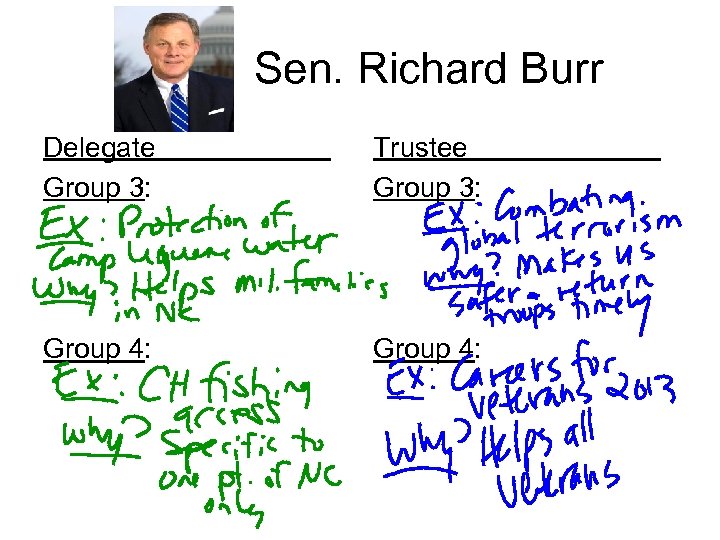 Sen. Richard Burr
Delegate
Group 3:
Ex: Protection of
Camp Lejeune water
Why? Helps mil. families
in NC
Group 4:
Ex: CH fishing
access
Why? Specific to
one pt. of NC
only
Trustee
Group 3:
Ex: Combating
global terrorism
Why? Makes us
safer - return
troops timely
Group 4:
Ex: Careers for
veterans 2013
Why? Helps all
veterans